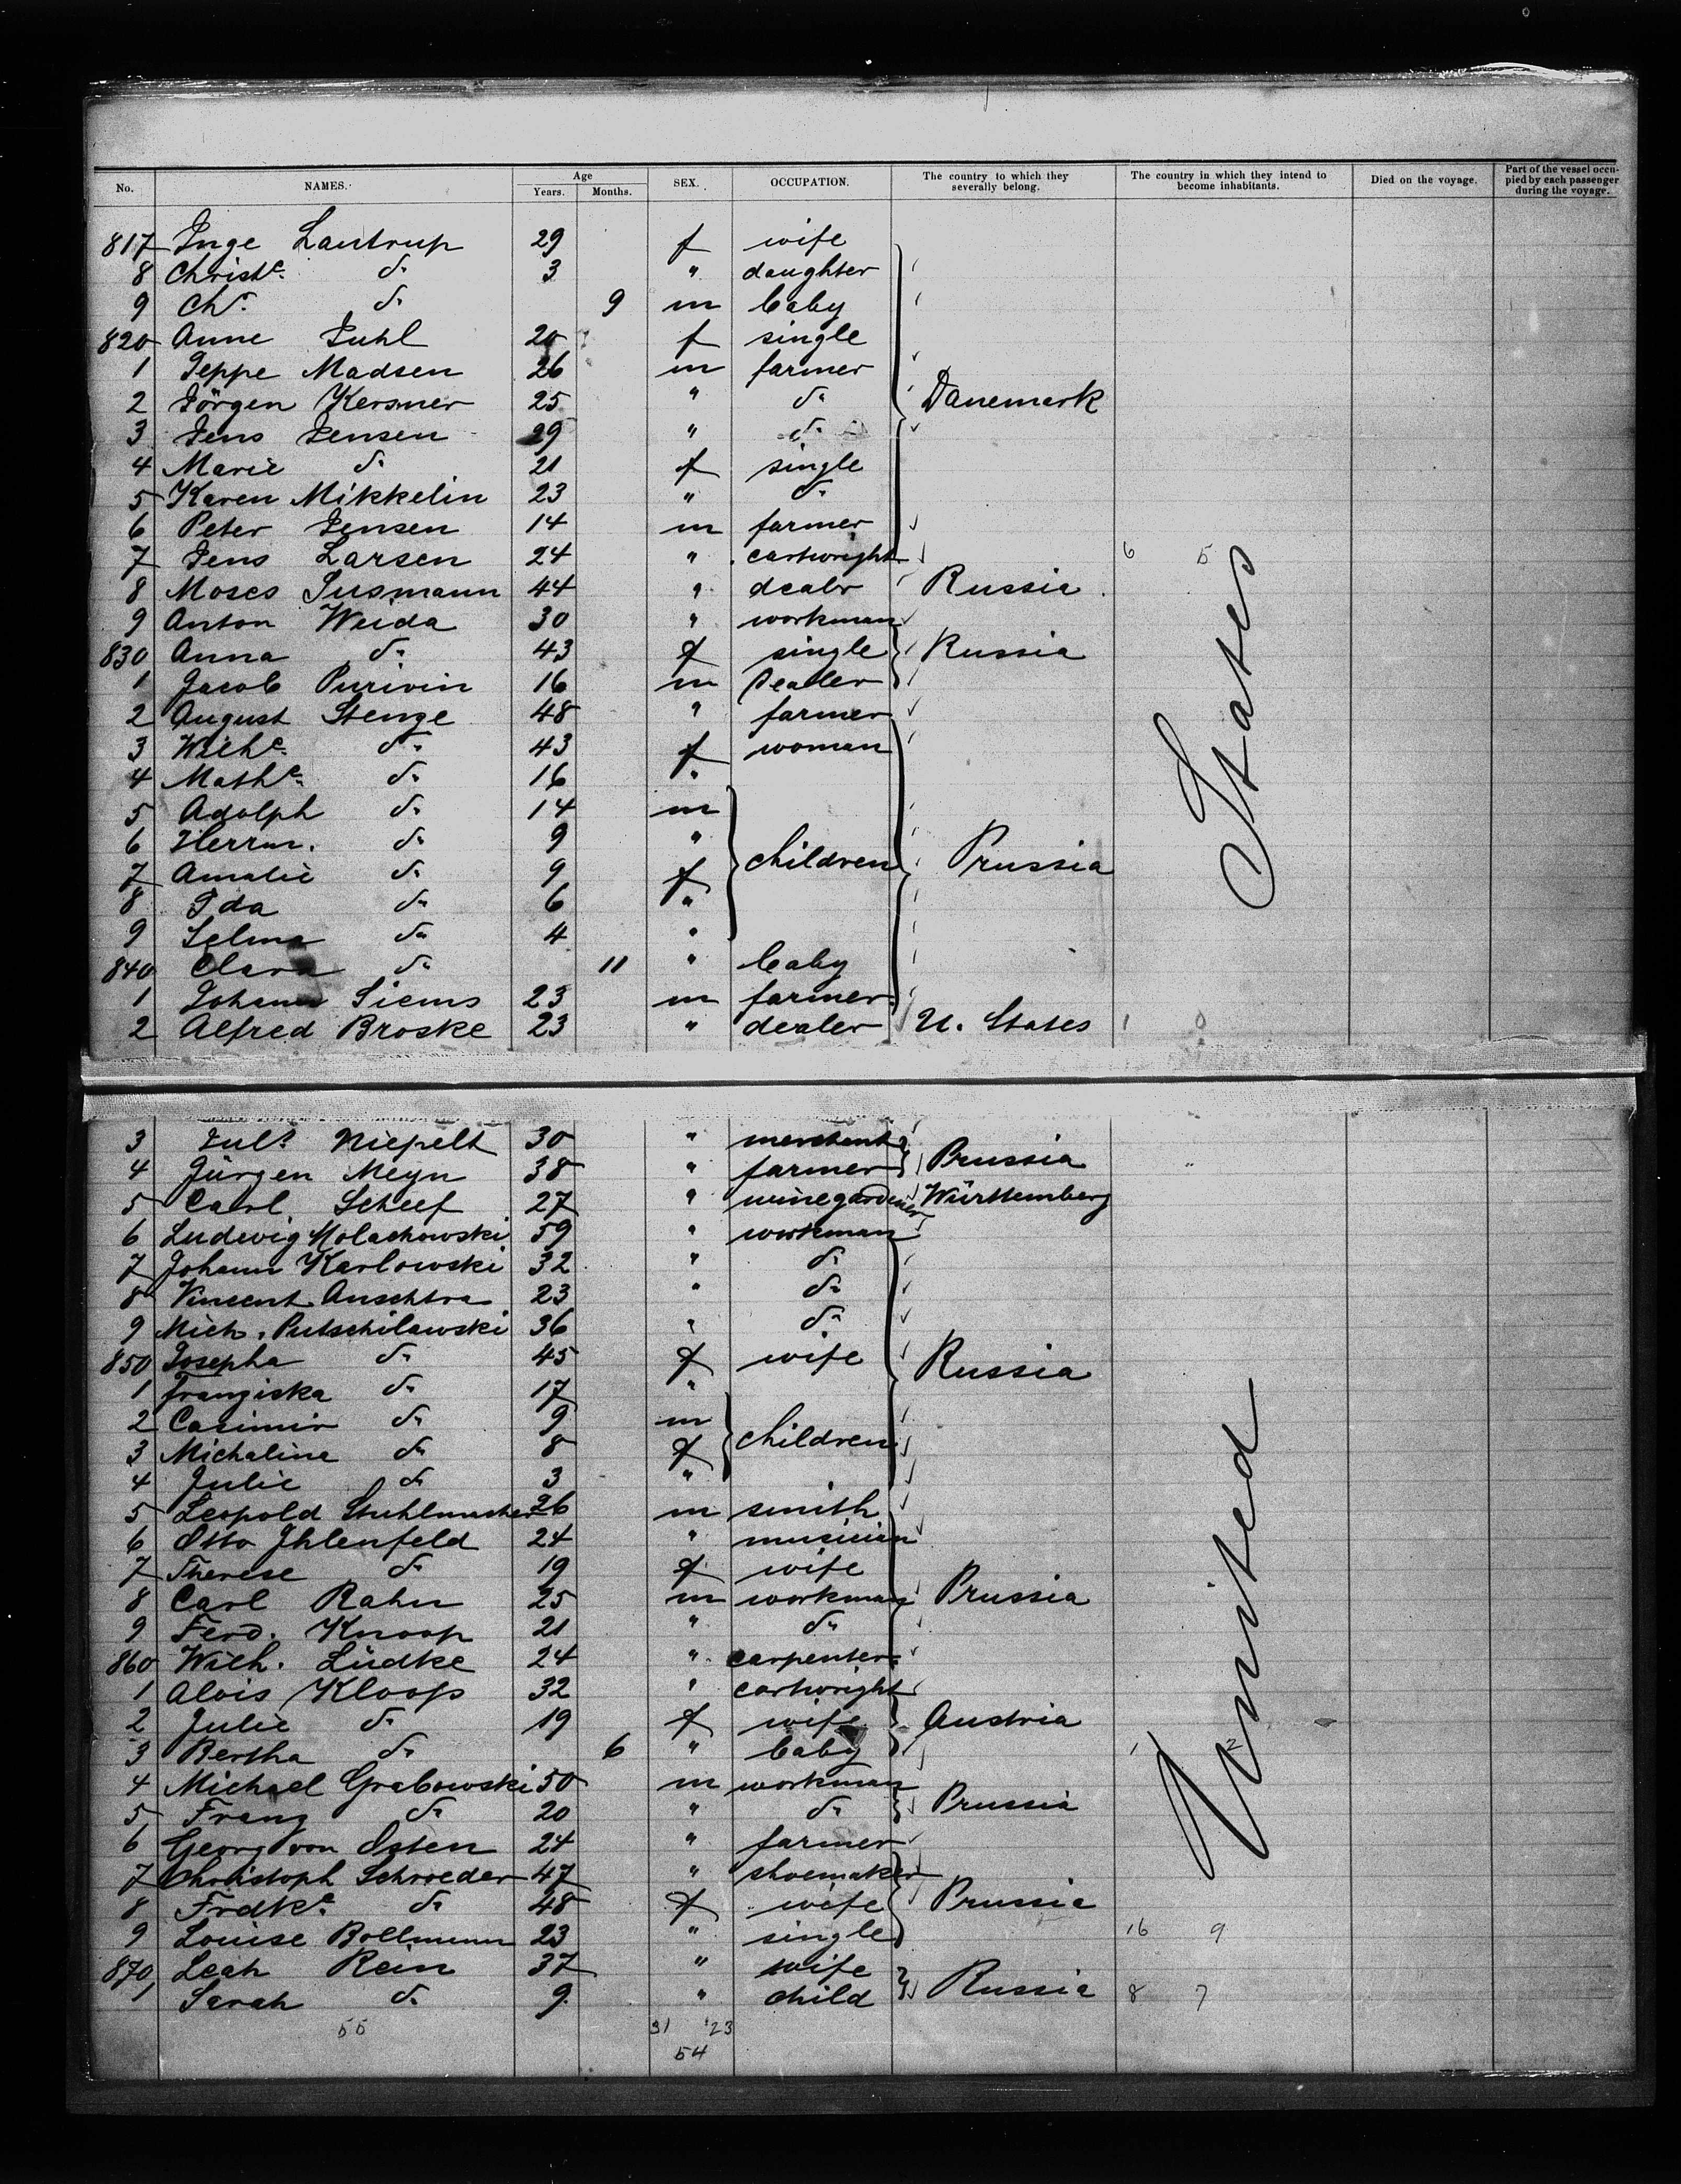 No. NAMES. Age Years. Months. SEX. OCCUPATION. The country to which they severally belong. The country in which they intend to become inhabitants. Died on the voyage. Part of the vessel occupied by each passenger during the voyage.
817 Inge Lautrup 29 f wife
8 Christe. do 3 " daughter
9 Chr. do 9 m baby
820 Anne Juhl 20 f single
1 Jeppe Madsen 26 m farmer
2 Jörgen Kersner 25 " do Danemark
3 Jens Jensen 29 " do
4 Marie do 21 f single
5 Karen Mikkelin 23 " do
6 Peter Jensen 14 m farmer
7 Jens Larsen 24 " cartwright 6 5
8 Moses Susmann 44 " dealer Russia
9 Anton Weida 30 " workman
830 Anna do 43 f single Russia
1 Jacob Purivin 16 m Dealer
2 August Stenge 48 " farmer
3 Wilhe. do 43 f woman
4 Mathe. do 16 "
5 Adolph do 14 m
6 Herrm. do 9 "
7 Amalie do 9 f children Prussia
8 Ida do 6 "
9 Selma do 4 "
840 Clara do 11 " baby
1 Johann Siems 23 m farmer
2 Alfred Broske 23 " dealer U. States 1 0
States
3 Juls Niepelt 30 " merchant
4 Jürgen Meyn 38 " farmer Prussia "
5 Carl Scheef 27 " winegardener Württemberg
6 Ludewig Molachowski 59 " workman
7 Johann Karlowski 32 " do
8 Vincent Auschtra 23 " do
9 Mich. Putschilawski 36 " do
850 Josepha do 45 f wife Russia
1 Franziska do 17 "
2 Casimir do 9 m
3 Michaline do 8 f children
4 Julie do 3 "
5 Leopold Stuhlmacher 26 m smith
6 Otto Ihlenfeld 24 " musician
7 Therese do 19 f wife
8 Carl Rahn 25 m workman Prussia
9 Ferd. Knoop 21 " do
860 Wilh. Lüdke 24 " carpenter
1 Alois Kloops 32 " cartwright
2 Julie do 19 f wife Austria
3 Bertha do 6 " baby 1 2
4 Michael Grabowski 50 m workman
5 Franz do 20 " do Prussia
6 Georg von Osten 24 " farmer
7 Christoph Schroeder 47 " shoemaker
8 Frdke. do 48 f wife Prussia
9 Louise Bollmann 23 " single 16 9
870 Leah Rein 37 " wife
1 Sarah do 9 " child Russia 8 7
United
55 31 23
54